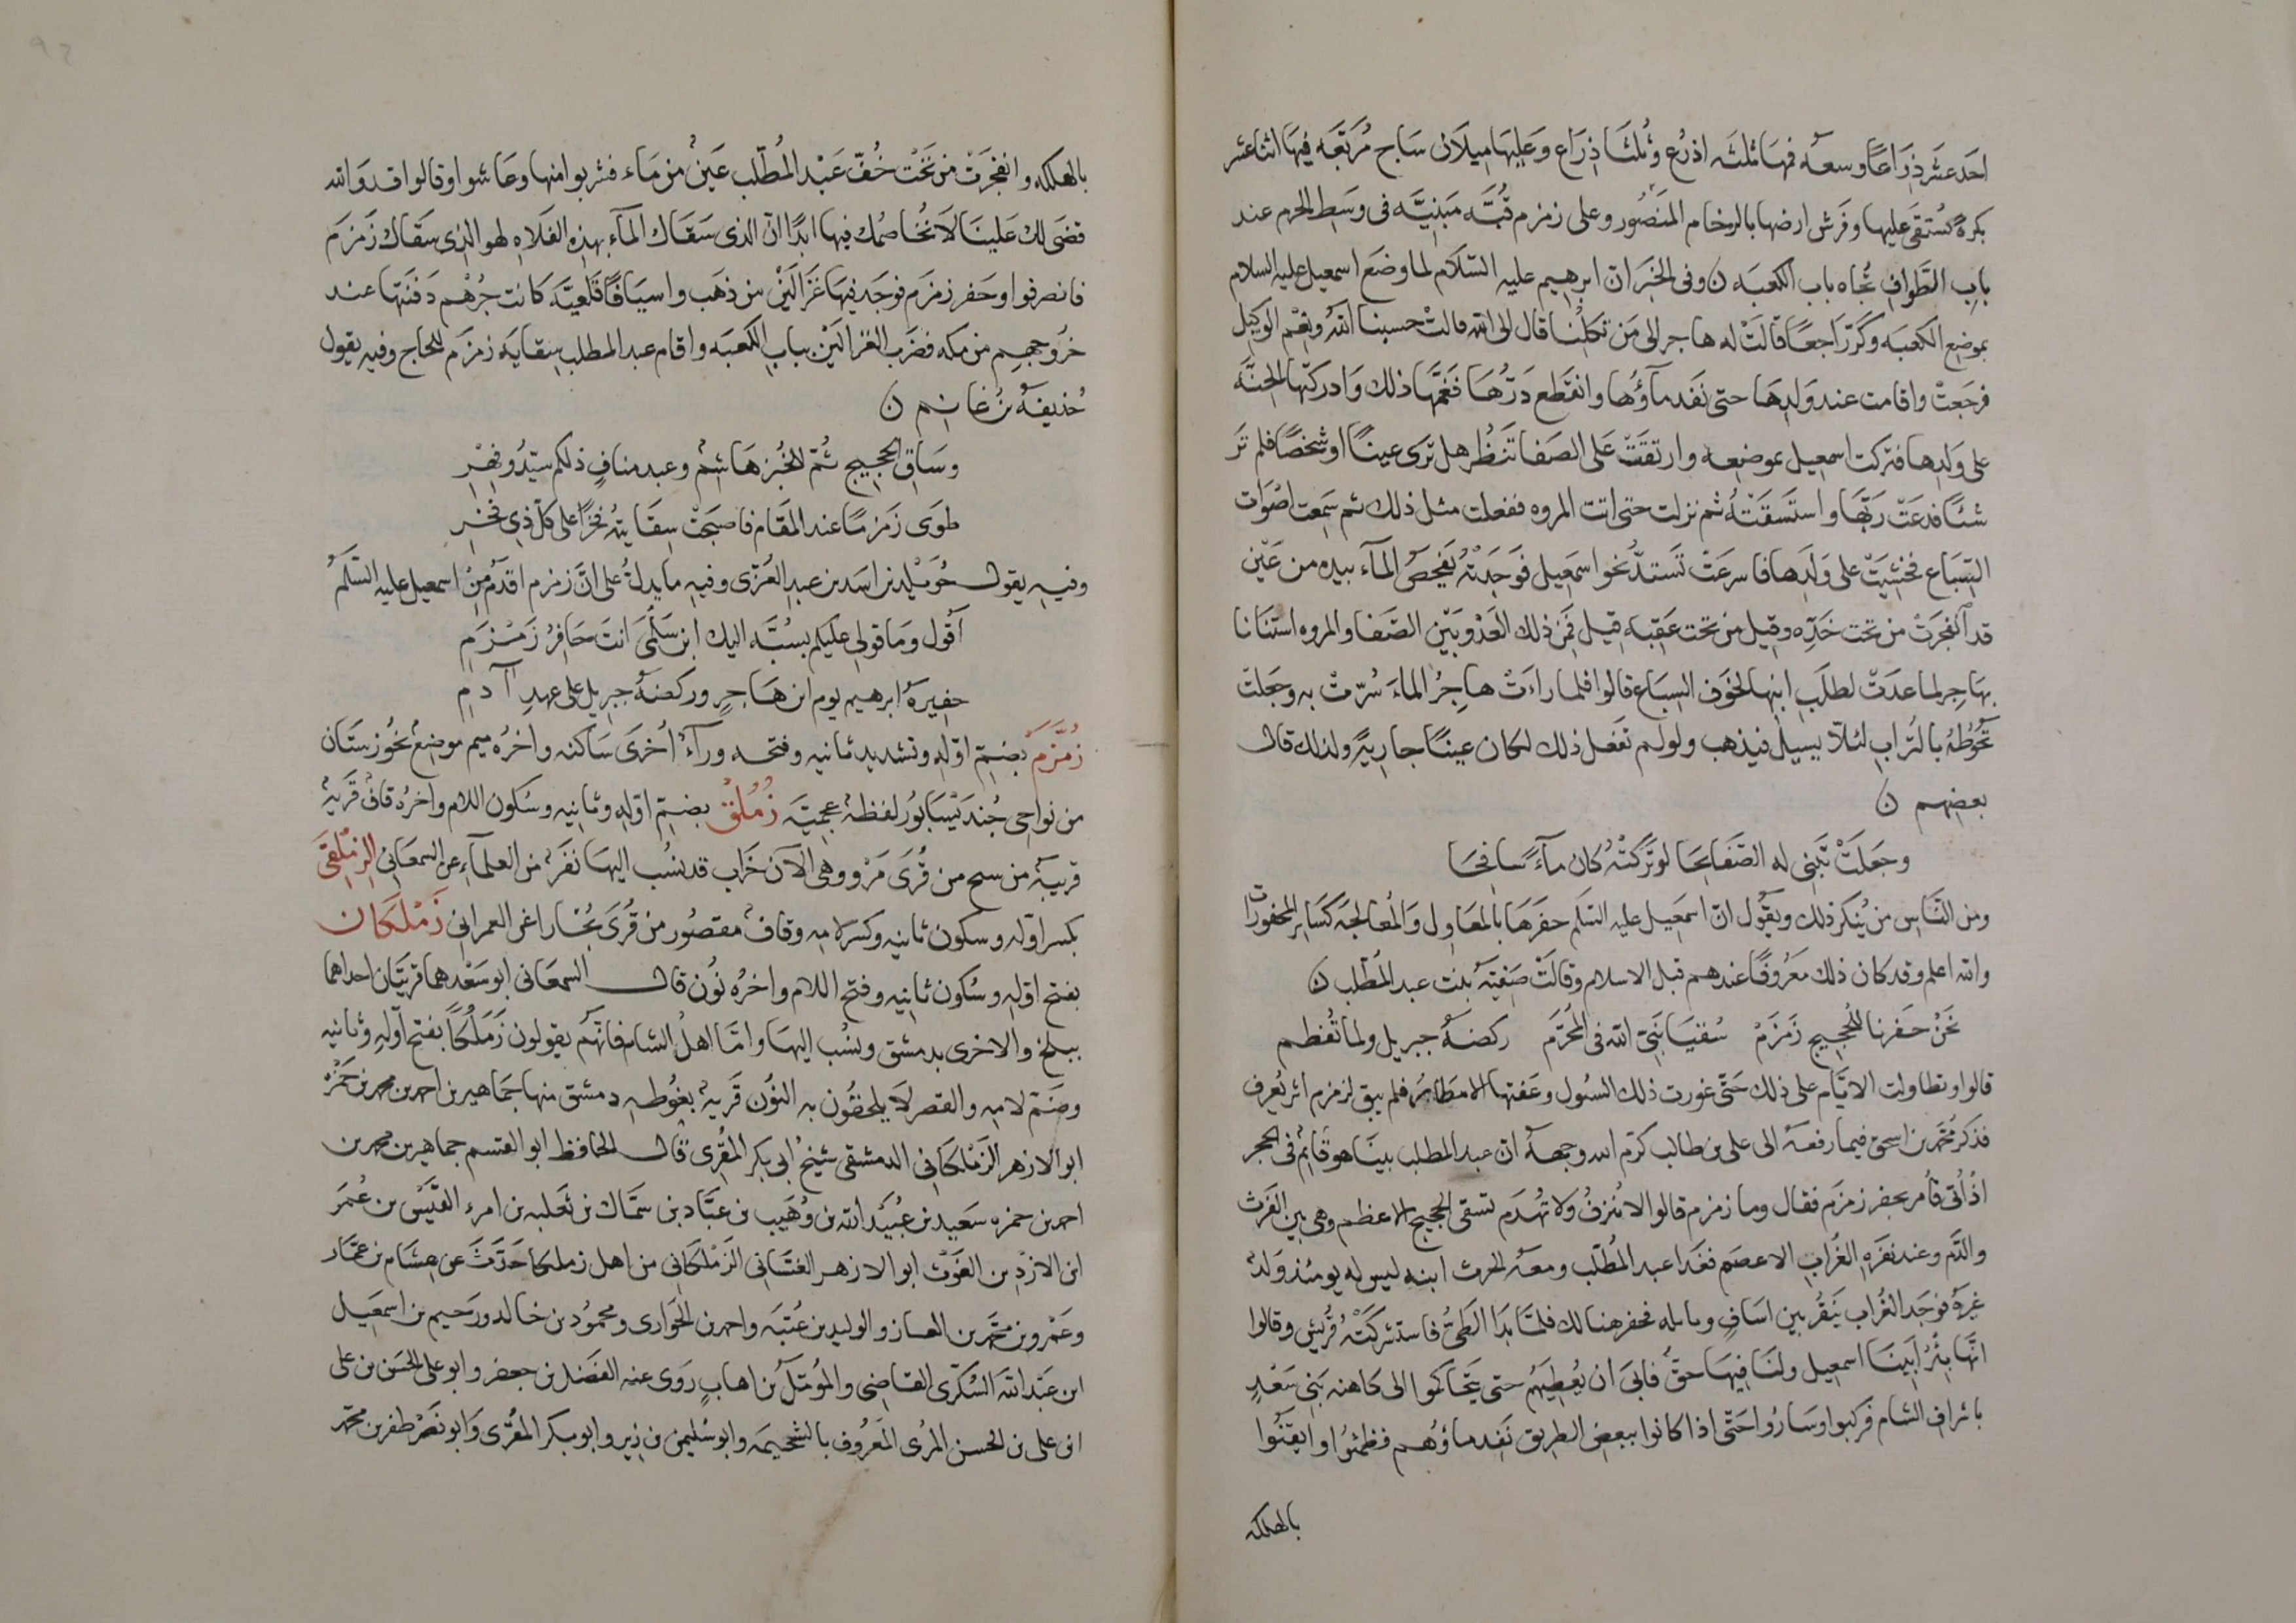 احد عشر ذِرَاعًا وسعه فمها ثلثه اذرُع وثُلثَا ذِرَاع وَعَليهَا ميلَان سَاج مُرَبّعَه فيهَا اثنا عشر
بكرةً يُستقَى عليها وفَرَش ارضها بالرخام المَنصُور وعلى زمزم قُبَّه مَبنِيَّه فى وَسَطِ الحرم عند
بابِ الطَّوافِ تُجاه باب الكعبَه ن وفى الخَبَر ان ابرهيم عليه السّلَام لما وضَع اسمعيل عليه السلام
بموضع الكعبَه وكَرّ رَاجعًا قَالَتْ له هاجر الى مَن تكِلنا قال الى الله قالتْ حسبنا اللهُ ونعْم الوكيل
فرجَعتْ واقامت عند وَلدِهَا حتى نَفَد ماَؤُها وانقَطع دَرّهُا فَغَمَّها ذلك وَادركتهَا الحنَّه
على وَلدِها فتركت اسمعيل بموضِعه وارتقَتْ عَلى الصَفا تَنظُر هل ترى عينًا او شخصًا فلم تَر
شيئًا فدعَتْ رَبَّهَا واستَسقَتْهُ ثم نزلت حتى اتت المروه ففعلت مثل ذلك ثم سَمعت اصْوَات
السِّبَاع فخشيَتْ على وَلَدهَا فاسرعَتْ تَستدُّ نحو اسمَعِيل فَوَجَدَتْهُ يَفحَصُ المآء بيده من عَيْن
قد انفجَرَتْ من تحت خَدِّه وقيل من تحت عَقِبه قيل فمن ذلك العَدْو بَيْن الصَفا والمروه استنانا
بهَاجر لما عدَتْ لطلَبِ ابنها لخوَف السِبَاع قالوا فلما راَتْ هَاجِرُ الماءَ سُرّتْ به وجَعلت
تحَوّطهُ بالتُراب لئلاّ يسيل فيذهب ولو لم تفعَل ذلك لكان عينًا جاريَةً ولذلك قال
بعضهم ن
وجَعَلَتْ تَبنى له الصَّفَايحَا لو تَركتْهُ كان مآءً سافحَا
ومن النَّاس من يُنكر ذلك ويقُول انّ اسمعيل عليه السّلم حفَرَهَا بالمعَاول وَالمُعالجَه كسَاير المحفورَات
والله اعلم وقد كان ذلك مَعرُوفًا عندهم قبل الاسلام وقالَتْ صَفيّة بنت عبد المُطّلب ن
نحَنُ حَفَرنا للحَجِيج زَمزَمْ سُقيَا نَبىّ الله فى المُحَرّمَ ركضَةُ جبريل ولما تُفطم
قالوا وتطاولت الايَّام على ذلك حَتّى غورت ذلك السيُول وعَفتها الامطار فلم يبق لزمزم اثر يُعرف
فذكر مُحمّد بن اسحق فيما رفعَهُ الى على بن طالب كرّم الله وجهه ان عبد المطلب بينَا هو قايم فى الحجر
اذ اُتى فاُمر بحفر زمزَم فقال وما زمزم قالوا لا تُنزفُ وَلا تُهدَم تسقى الحجيج الاعظم وهى بين الفَرث
والدَّم وعند نقرَه الغُرابِ الاعصَم فغدَا عبد المُطّلب ومعَهُ الحرث ابنه ليس له يومئذ وَلدٌ
غيرهُ فوَجَد الغُراب يَنقُر بين اسَافٍ ونايله فحفر هنالك فلمَّا بدَا الطىُّ فاستشركتْهُ قُريش وقالوا
انّها بئرُ ابَينا اسمعيل ولنَا فيهَا حقّ فابىَ ان يُعطيَهُم حتى يتحاكموا الى كاهنه بَنى سَعْدٍ
باشراف الشام فركبوا وسَارُوا حَتّى اذا كانوا ببعض الطريق نَفِد ماؤهُم فظمئُوا وايقنُوا
بالهلكه
بالهلكه وانفجَرَت من تَحَتْ خُفّ عَبْد المُطّلب عَينٌ من مَاء فشربوا منها وعَاشوا وقالوا قد وَالله
قضَى لكَ عَلينَا لاَ نُخاصمُك فيها ابدًا انّ الذى سَقَاك المآء بهذِه الفَلاه لهو الذى سَقَاك زَمزَم
فانصرفوا وحَفر زمزَم فوجَد فيهَا غَزالَيْن من ذهَب واسيَافًا قَلعيَّه كانت جُرْهُم دَفَنَتها عند
خرُوجهم من مكه فضَرَب الغزالَيْن ببابِ الكَعبَه واقام عبد المطلب سِقايَه زمزَم للحاج وفيه يقول
حُذيفهُ بنُ غانم ن
وسَاقى الحَجِيج ثُمّ للخُبز هَاشمٌ وعبد منافٍ ذلكم سيّدُ وفِهْرِ
طوَى زَمَزمًا عند المقَام فاصبَحَتْ سِقَايتُهُ فَخرًا على كلّ ذى فخْرِ
وفيه يقول خُوَيْلد بن اسَد بن عبدِ العُزّى وفيه ما يدلُّ على انَّ زمزم اقدَمُ مِنْ اسمعيل عليه السّلَمُ
اَقُول وما قولى عليكم بسُبَّهٍ اليك ابن سَلْمىَ انتَ حَافِرُ زَمْزَمِ
حفيرَهُ ابرهيم يوم ابن هَاجرٍ وركضَهُ جبريل على عهدِ آدمِ
زُمَّرَم بضمّ اوّلهِ وتشديد ثانيه وفتحه ورآءٌ اُخرىَ سَاكنه واخرُه ميم موضِعٌ بخُوزستَان
من نواحى جُندَيْسَابُور لفظهٌ عجميّه زُمُلقْ بضمّ اوّلهِ وثانيه وسُكون اللام واخرُه قافٌ قَريهٌ
قريبهٌ من سنج من قُرَى مَرْو وهى الآن خَراب قد نسُب اليهَا نَفَرٌ من العلمآءِ عن السمعَانى الزِمْلِقىَ
بكسر اوّله وسكون ثانيه وكسر لامه وقافٌ مقصُور من قُرىَ بُخارا عن العمرانى زَمْلَكان
بفتح اوّلهِ وسُكون ثانيه وفتح اللام واخرُه نُون قال السمعَانى ابو سَعْد هما قريتَان احداهما
ببلخ والاخرى بدمشق ونسُب اليهَا وامّا اهلُ الشام فانّهُم يقولون زَمَلُكاَ بفتح اوّلهِ وثانيه
وضمّ لامه والقصر لاَ يلحقُون به النوُن قَريهٌ بغُوطه دمشق منها جمَاهير بن احمد بن محمد بن حَمزَهْ
ابو الازهر الزَملكانى الدمشقى شَيخُ ابى بكر المقُرى قال الحافظ ابو القسم جماهير بن محمد بن
احمد بن حمزه سَعيد بن عُبَيْد الله بن وُهَيب بن عبَّاد بن سمَّاك بن ثعَلبه بن امرء القَيْس بن عُمَرَ
ابن الازدِ بن الغَوث ابو الازهر الغسّانى الزَمْلكَانى من اهل زملكا حَدّثَ عن هِشَام بن عمَّار
وعَمْرو بن محمَّد بن الغاز والوليد بن عُتبَه واحمد بن الحَوَارى ومحمُود بن خالد ورَحيم بن اسمعيل
ابن عَبْد الله السُكرى القاضى والمُومّلُ بن اهابٍ رَوى عنه الفَضل بن جعفر وابو على الحَسَن بن على
ابن على بن الحسن المرى المَعرُوف بالشحيمَه وابو سُليمن بن زبر وابو بكر المقُرى وَابو نصْر ظفر بن محمّد